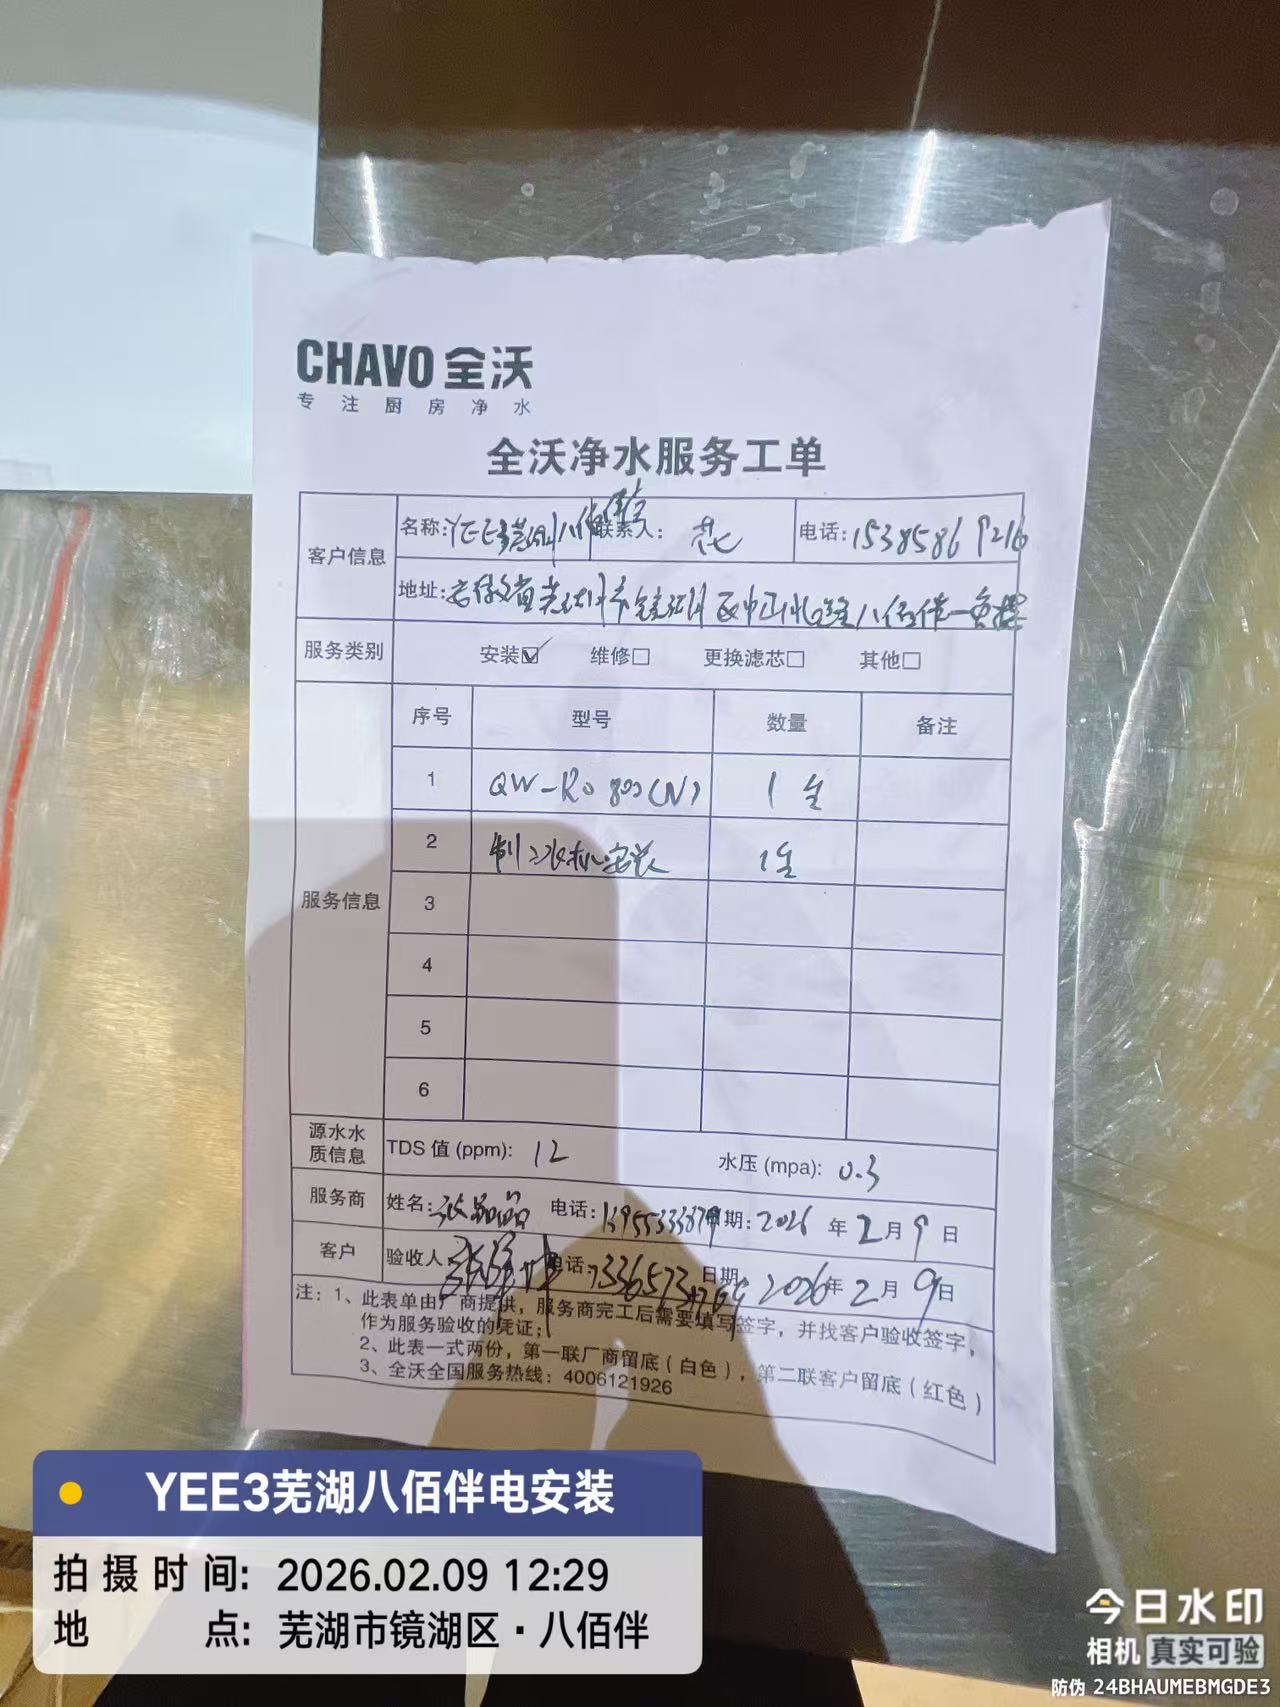 CHAVO 全沃
专注厨房净水
全沃净水服务工单
客户信息
名称: YEE3芜湖八佰伴店 联系人: 范 电话: 15385869216
地址: 安徽省芜湖市镜湖区中山北路八佰伴一负楼
服务类别 安装☑ 维修□ 更换滤芯□ 其他□
服务信息
序号 型号 数量 备注
1 QW-RO 800(N) 1台
2 制冰机安装 1台
3
4
5
6
源水水质信息 TDS 值 (ppm): 12 水压 (mpa): 0.3
服务商 姓名: 电话: 日期: 2026 年 2 月 9 日
客户 验收人: 电话: 日期: 2026 年 2 月 9 日
注: 1、此表单由厂商提供，服务商完工后需要填写签字，并找客户验收签字，
作为服务验收的凭证；
2、此表一式两份，第一联厂商留底（白色），第二联客户留底（红色）
3、全沃全国服务热线：4006121926
YEE3芜湖八佰伴电安装
拍摄时间: 2026.02.09 12:29
地点: 芜湖市镜湖区·八佰伴
今日水印
相机 真实可验
防伪 24BHAUMEBMGDE3